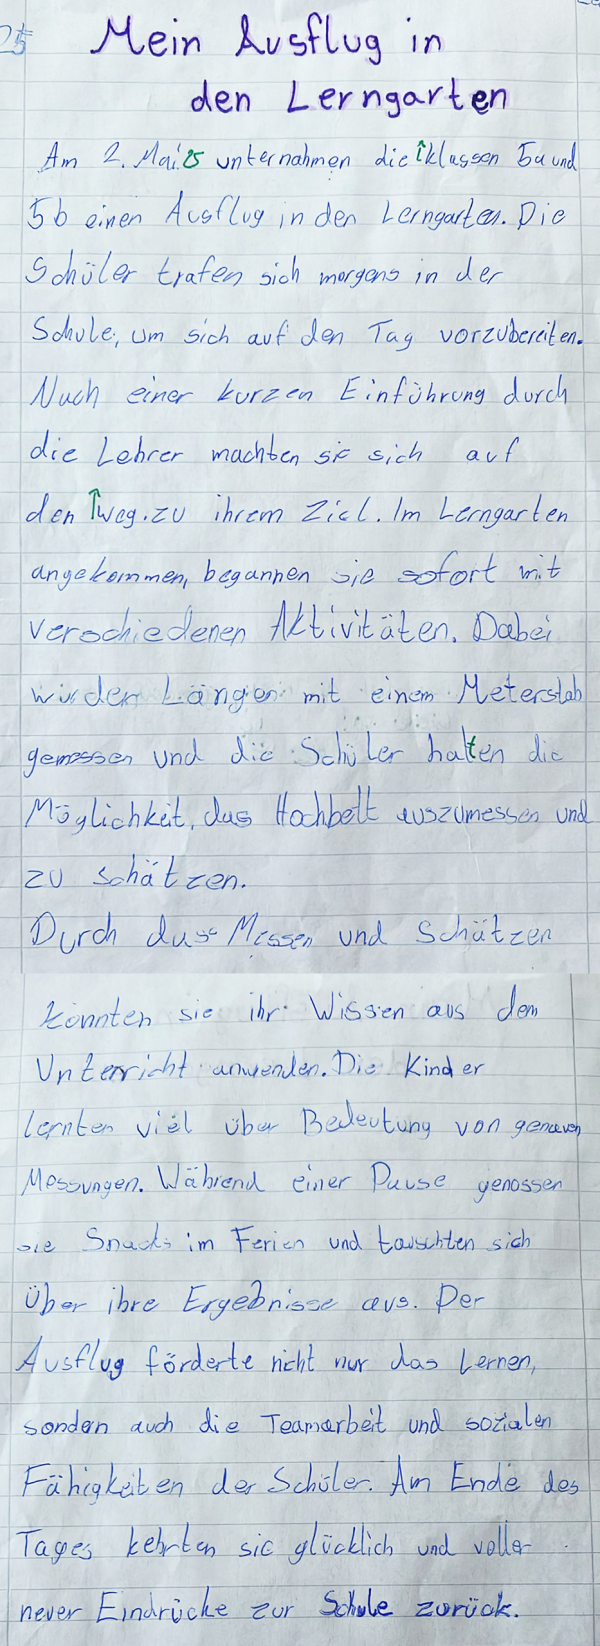 Mein Ausflug in
den Lerngarten
Am 2. Mai 25 unternahmen die klassen 5a und
5b einen Ausflug in den Lerngarten. Die
Schüler trafen sich morgens in der
Schule, um sich auf den Tag vorzubereiten.
Nach einer kurzen Einführung durch
die Lehrer machten sie sich auf
den weg zu ihrem Ziel. Im Lerngarten
angekommen, begannen sie sofort mit
verschiedenen Aktivitäten. Dabei
wurden Längen mit einem Meterstab
gemessen und die Schüler hatten die
Möglichkeit, das Hochbett auszumessen und
zu schätzen.
Durch das Messen und Schätzen
konnten sie ihr Wissen aus dem
Unterricht anwenden. Die Kinder
lernten viel über Bedeutung von genauen
Messungen. Während einer Pause genossen
sie Snacks im Ferien und tauschten sich
über ihre Ergebnisse aus. Der
Ausflug förderte nicht nur das Lernen,
sondern auch die Teamarbeit und sozialen
Fähigkeiten der Schüler. Am Ende des
Tages kehrten sie glücklich und voller
neuer Eindrücke zur Schule zurück.